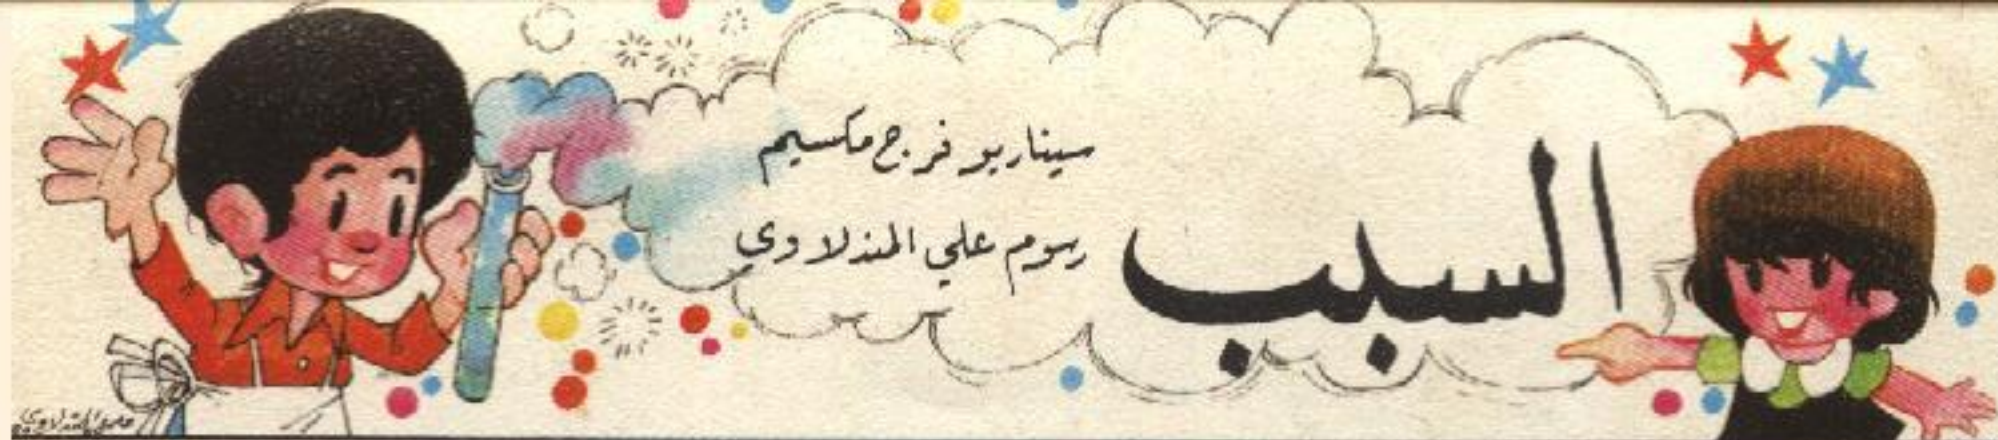 السبب
سيناريو فرج مكسيم
رسوم علي المندلاوي
علي المندلاوي